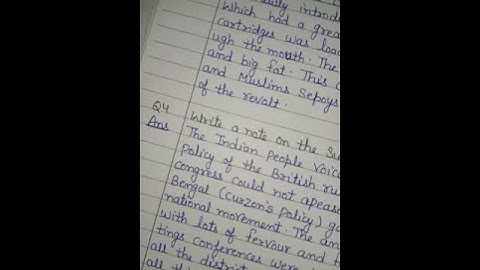 introdu
which had a grea
cartridges was loa
ugh the mouth. The
and big fat. This
and Muslims Sepoys
of the revolt.
Q4 Write a note on the Su
Ans The Indian people voice
policy of the British ru
congress could not apease
Bengal (curzon's policy) ga
national movement. The an
with lots of fervour and
tings conferences were
all the district
all